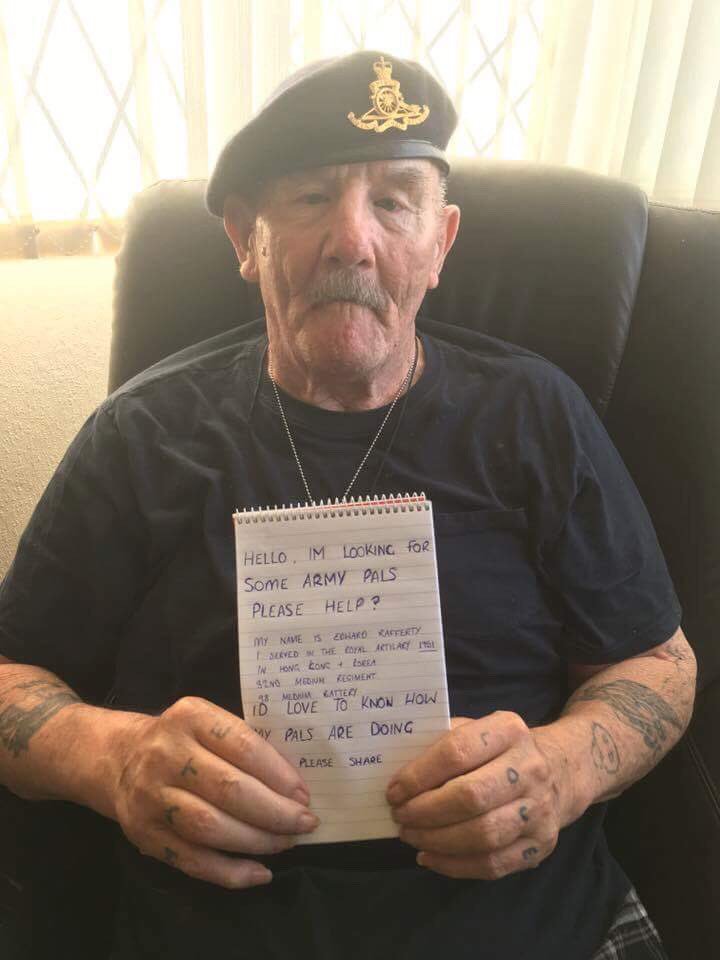 HELLO, IM LOOKING FOR
SOME ARMY PALS
PLEASE HELP?
MY NAME IS EDWARD RAFFERTY
I SERVED IN THE ROYAL ARTILARY
IN HONG KONG + KOREA
MEDIUM REGIMENT
98 MEDIUM BATTERY
ID LOVE TO KNOW HOW
MY PALS ARE DOING
PLEASE SHARE